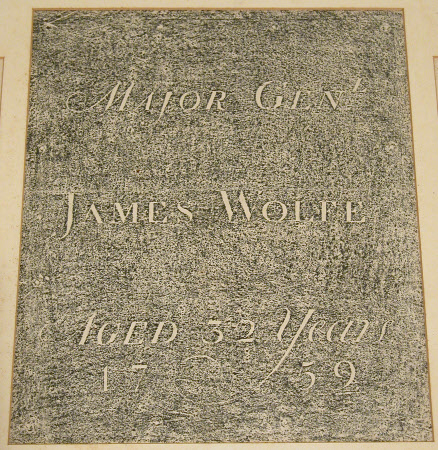 Major Genˡ
James Wolfe
Aged 32 Years
17 59